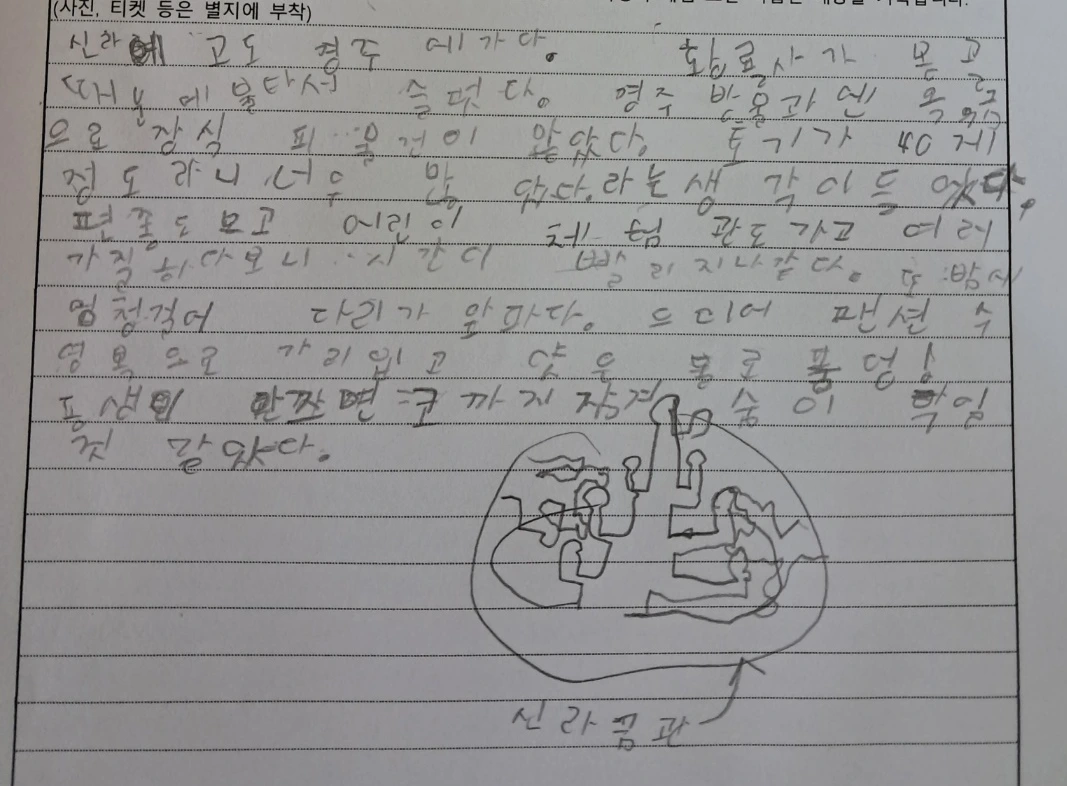 (사진, 티켓 등은 별지에 부착)
신라에 고도 경주에가다. 황룔사가 몽고
때문에 불타서 슬펏다. 경주 박물과엔 목걸
으로 장식 피 물건이 많았다. 토기가 40개
정도 라니 너무 많 았다.라는생 각이 들 었다.
편종도 모고 어린이 체험 관도가고 여러
가질 하다보니 시간이 빨리 지나갔다. 또
엄청걸어 다리가 앞파다. 드디어 팬션 수
영복으로 가리입고 얏은 물로 풍덩!
동생이 코까지 숨이
것 같았다.
신라금관